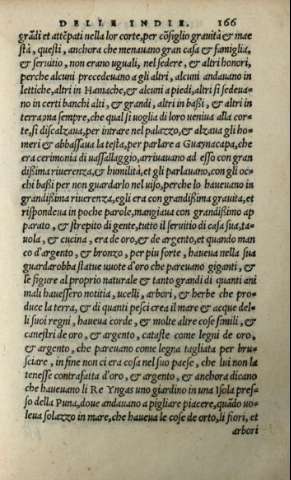 DELLE INDIE. 166
grãdi et attẽpati nella lor corte, per cõsiglio grauità & mae
stà, questi, anchora che menauano gran casa & famiglia,
& seruitio, non erano uguali, nel sedere, & altri honori,
perche alcuni precedeuano a gli altri, alcuni andauano in
lettiche, altri in Hamache, & alcuni a piedi, altri si sedeua-
no in certi banchi alti, & grandi, altri in baßi, & altri in
terra, ma sempre, che qual si uoglia di loro ueniua alla cor-
te, si discalzaua, per intrare nel palazzo, & alzaua gli ho-
meri & abbassaua la testa, per parlare a Guaynacapa, che
era cerimonia di uassallaggio, arriuauano ad esso con gran
dißima riuerenza, & humilità, et gli parlauano, con gli oc-
chi baßi per non guardarlo nel uiso, perche lo haueuano in
grandißima riuerenza, egli era con grandißima grauità, et
rispondeua in poche parole, mangiaua con grandißimo ap
parato, & strepito di gente, tutto il seruitio di casa sua, ta-
uola, & cucina, era de oro, & de argento, et quando man
co d'argento, & bronzo, per piu forte, haueua nella sua
guardarobba statue uuote d'oro che pareuano giganti, &
le figure al proprio naturale & tanto grandi di quanti ani
mali hauessero notitia, ucelli, arbori, & herbe che pro-
duce la terra, & di quanti pesci crea il mare & acque del-
li suoi regni, haueua corde, & molte altre cose simili, &
canestri de oro, & argento, cataste come legni de oro,
& argento, che pareuano come legna tagliata per bru-
sciare, in fine non ci era cosa nel suo paese, che lui non la
tenesse contrafatta d'oro, & argento, & anchora dicono
che haueuano li Re Yngas uno giardino in una Isola pres-
so della Puna, doue andauano a pigliare piacere, quãdo uo-
leua solazzo in mare, che haueua le cose de orto, li fiori, et
arbori